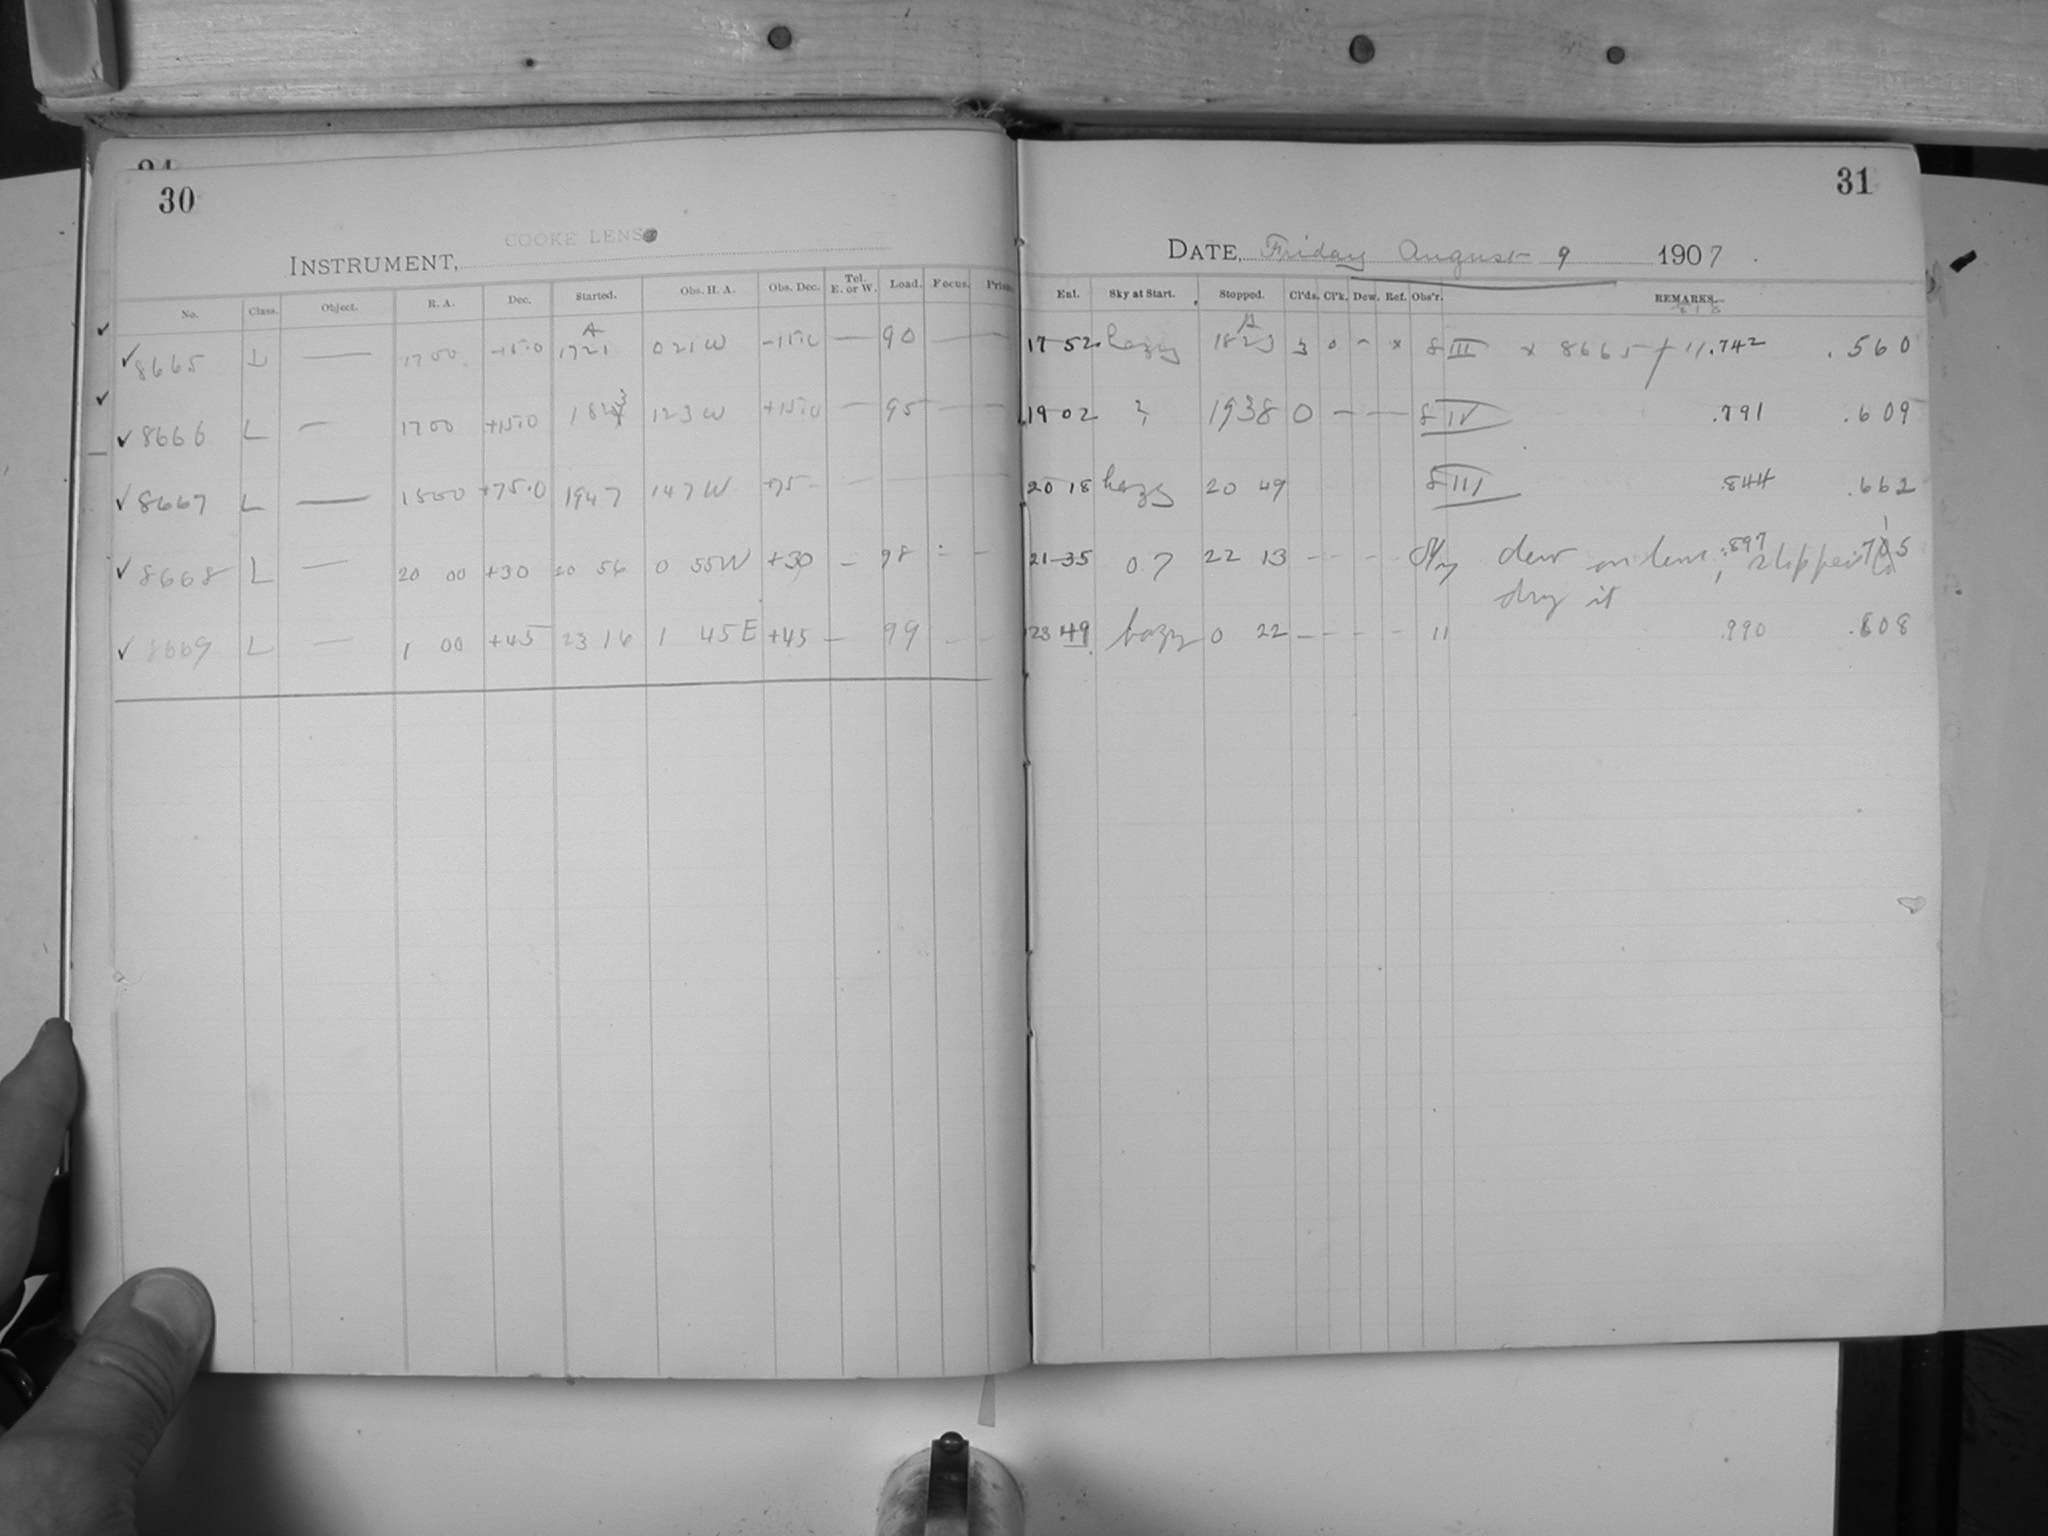 30
COOKE LENS
INSTRUMENT,
No. Class. Object. R. A. Dec. Started. Obs. H. A. Obs. Dec. Tel. E. or W. Load. Focus. Prism
✓ 8665 L — 17 00 -15.0 17 21 0 21 W -15.0 — 90 — —
✓ 8666 L — 17 00 +15.0 18 23 1 23 W +15.0 — 95 — —
✓ 8667 L — 18 00 +75.0 19 47 1 47 W +75 — — — —
✓ 8668 L — 20 00 +30 20 56 0 55 W +30 — 98 - -
✓ 8669 L — 1 00 +45 23 16 1 45 E +45 — 99 - -
31
DATE, Friday August 9 1907.
Ent. Sky at Start. Stopped. Cl'ds. Cl'k. Dew. Ref. Obs'r. REMARKS.
17 52 hazy 18 23 3 0 - x S III x 8665 11.742 .560
19 02 " 19 38 0 — — S IV .791 .609
20 18 hazy 20 49 S III .844 .662
21 35 0.7 22 13 - - - - dew on lens, .897
dry it
23 49 hazy 0 22 - - - - " .990 .808